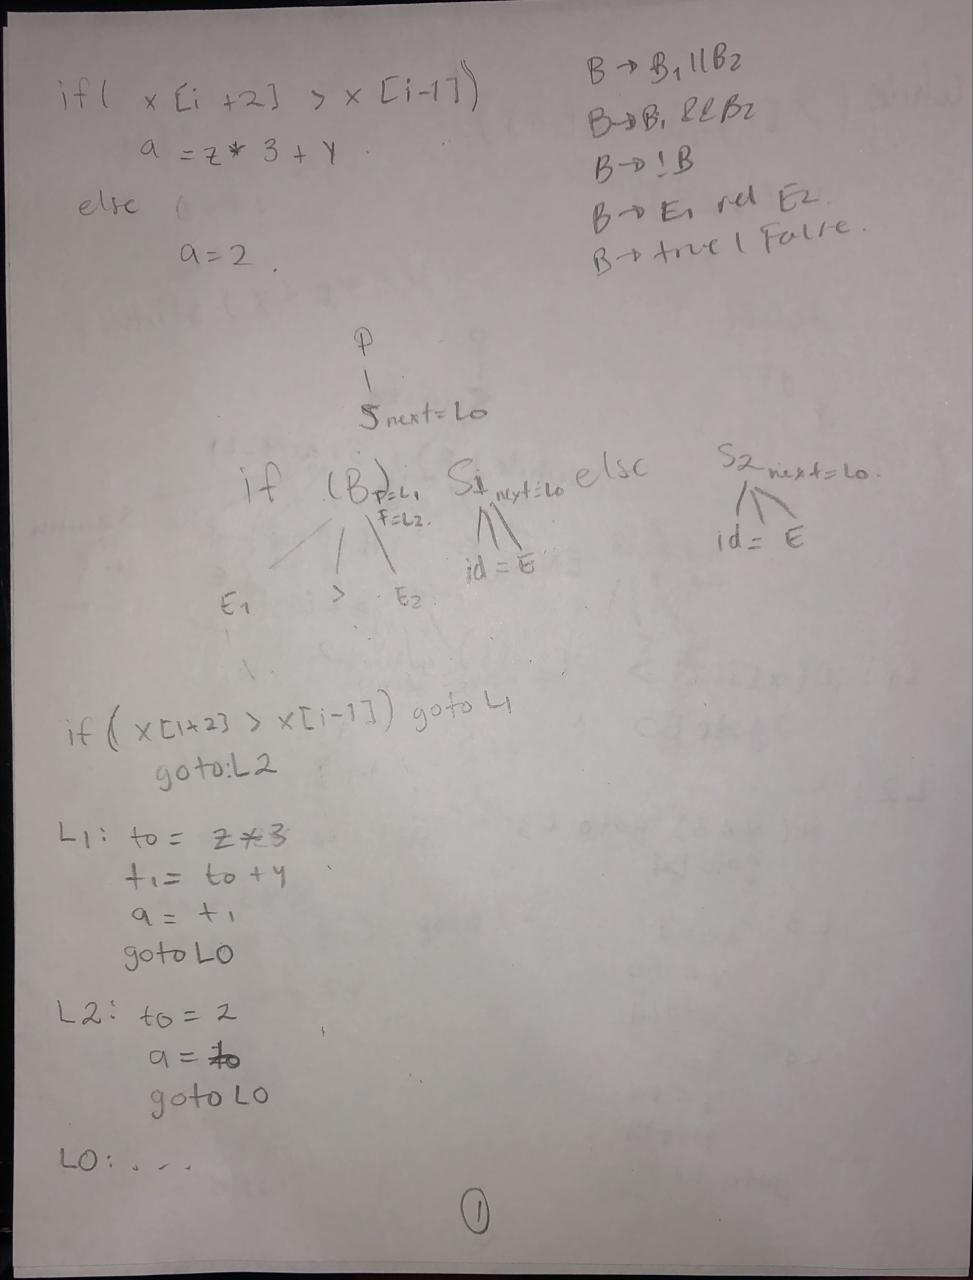 if( x [i +2] > x [i-1])
a = z * 3 + y
else
a = 2
B → B1 || B2
B → B1 && B2
B → ! B
B → E1 rel E2
B → true | False.
P
S next = L0
if (B) T=L1 S1 next=L0 else S2 next=L0.
F=L2.
id = E id = E
E1 > E2
if ( x[i+2] > x[i-1]) goto L1
goto:L2
L1: t0 = z*3
t1 = t0 + y
a = t1
goto L0
L2: t0 = 2
a = t0
goto L0
L0: . . .
1